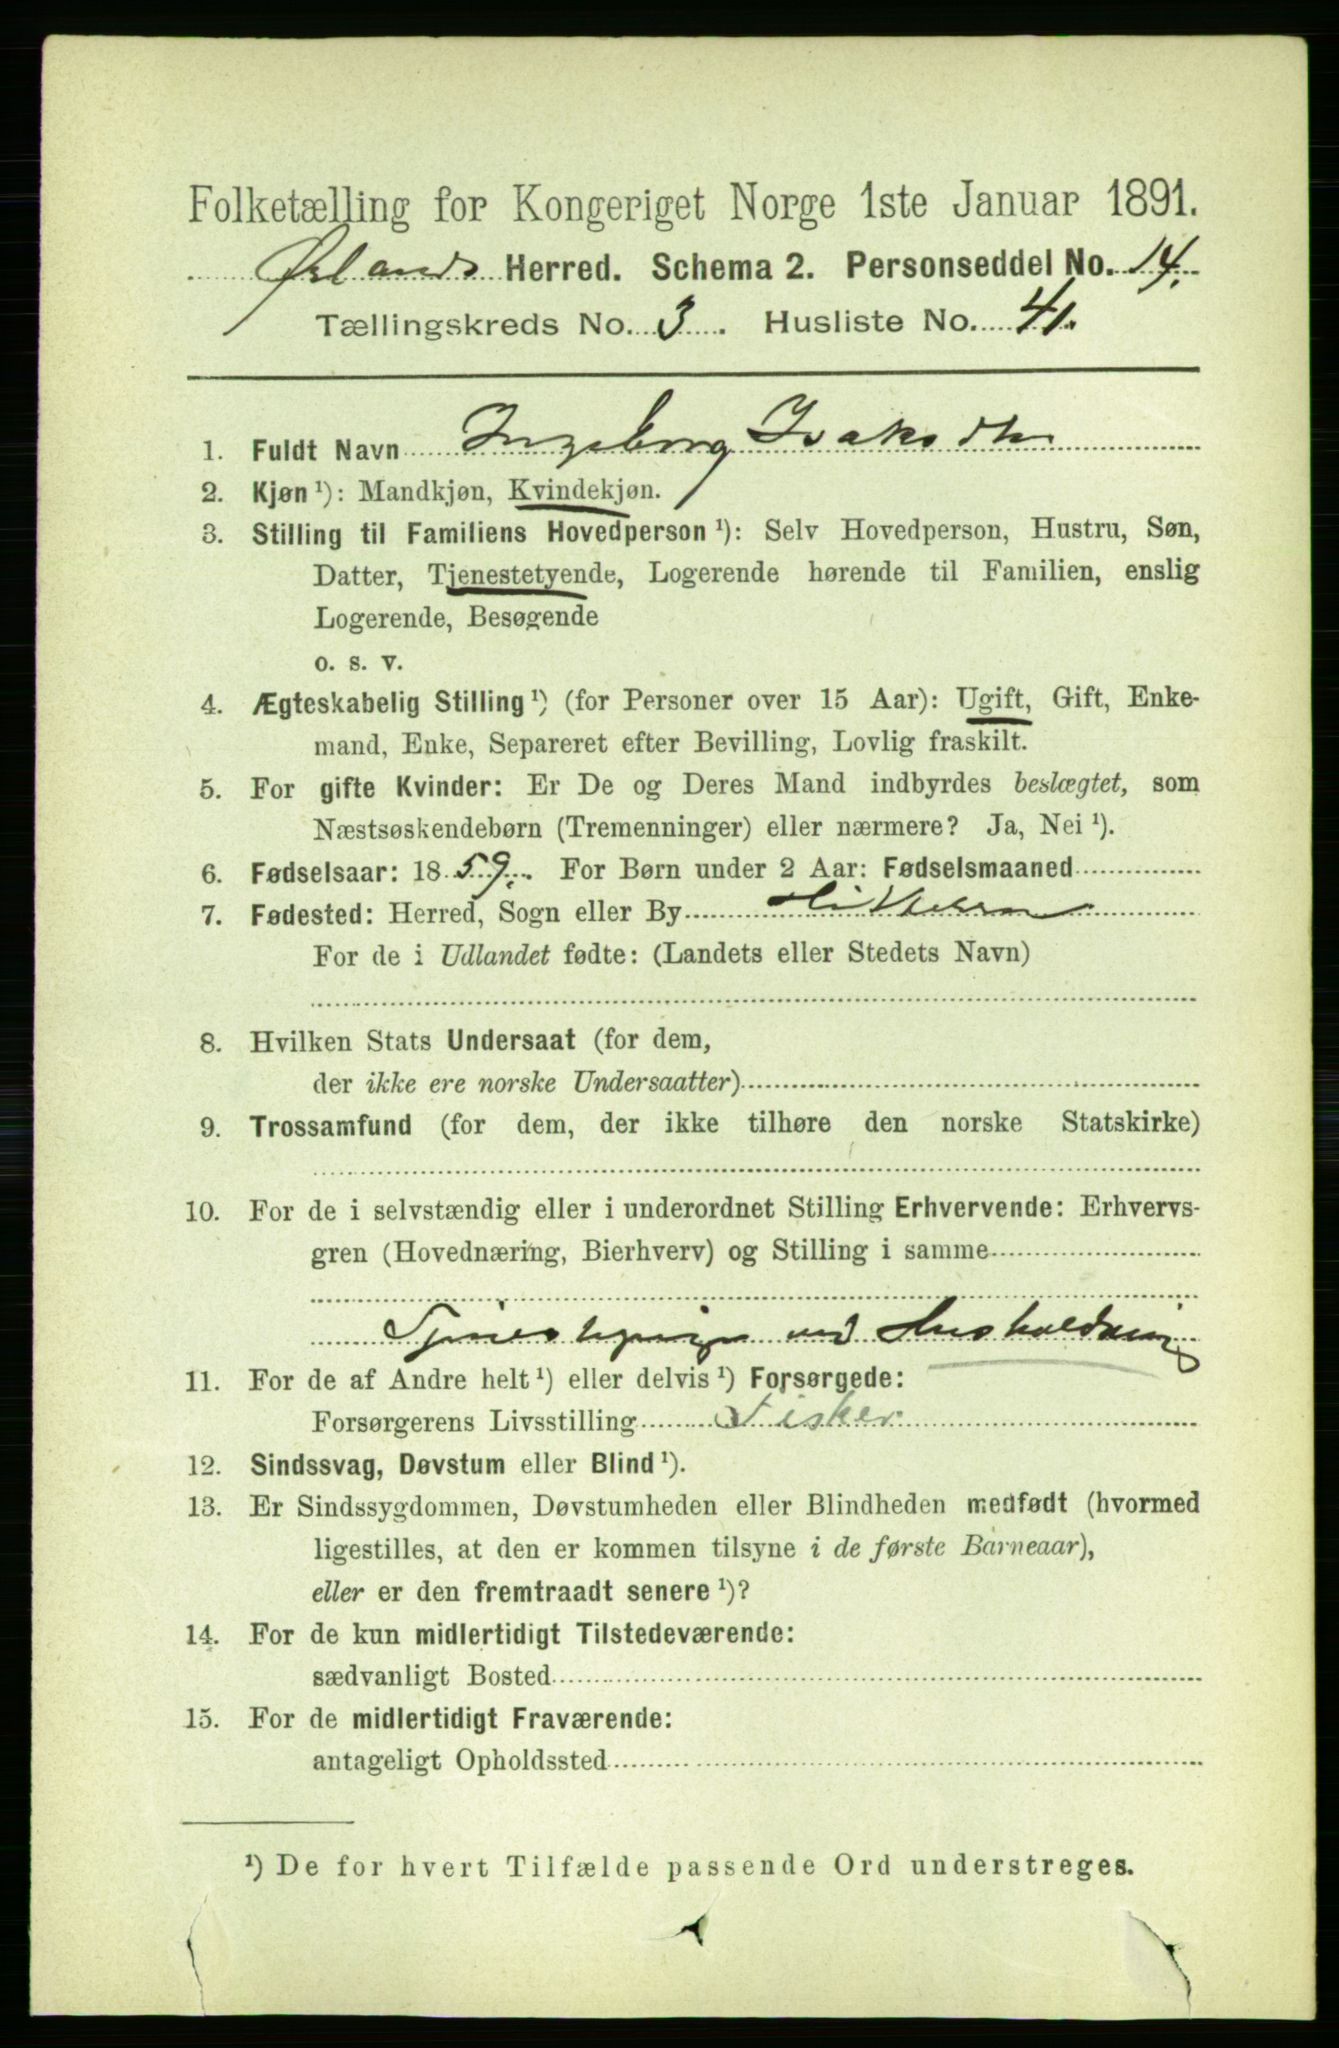 Folketælling for Kongeriget Norge 1ste Januar 1891.
Ørlands Herred. Schema 2. Personseddel No. 14.
Tællingskreds No. 3. Husliste No. 41.
1. Fuldt Navn Ingeborg Isaksdtr
2. Kjøn ¹): Mandkjøn, Kvindekjøn.
3. Stilling til Familiens Hovedperson ¹): Selv Hovedperson, Hustru, Søn,
Datter, Tjenestetyende, Logerende hørende til Familien, enslig
Logerende, Besøgende
o. s. v.
4. Ægteskabelig Stilling ¹) (for Personer over 15 Aar): Ugift, Gift, Enke-
mand, Enke, Separeret efter Bevilling, Lovlig fraskilt.
5. For gifte Kvinder: Er De og Deres Mand indbyrdes beslægtet, som
Næstsøskendebørn (Tremenninger) eller nærmere? Ja, Nei ¹).
6. Fødselsaar: 1859. For Børn under 2 Aar: Fødselsmaaned
7. Fødested: Herred, Sogn eller By Hitteren
For de i Udlandet fødte: (Landets eller Stedets Navn)
8. Hvilken Stats Undersaat (for dem,
der ikke ere norske Undersaatter)
9. Trossamfund (for dem, der ikke tilhøre den norske Statskirke)
10. For de i selvstændig eller i underordnet Stilling Erhvervende: Erhvervs-
gren (Hovednæring, Bierhverv) og Stilling i samme
Tjenestepige ved Husholdning
11. For de af Andre helt ¹) eller delvis ¹) Forsørgede:
Forsørgerens Livsstilling Fisker
12. Sindssvag, Døvstum eller Blind ¹).
13. Er Sindssygdommen, Døvstumheden eller Blindheden medfødt (hvormed
ligestilles, at den er kommen tilsyne i de første Barneaar),
eller er den fremtraadt senere ¹)?
14. For de kun midlertidigt Tilstedeværende:
sædvanligt Bosted
15. For de midlertidigt Fraværende:
antageligt Opholdssted
¹) De for hvert Tilfælde passende Ord understreges.